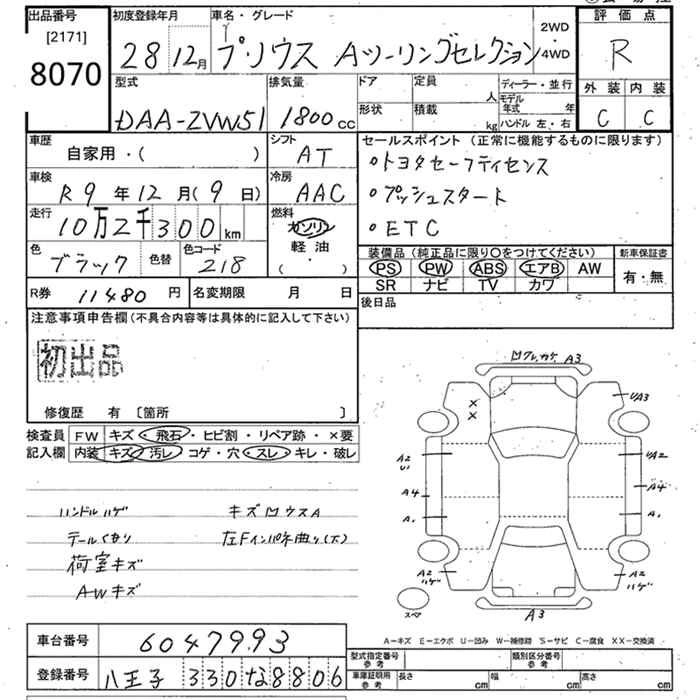 出品番号
[2171]
8070
初度登録年月
28 12月
車名・グレード
プリウス Aツーリングセレクション
2WD
4WD
評価点
R
外装 内装
C C
型式
DAA-ZVW51
排気量
1800cc
ドア 定員 人
形状 積載 kg
ディーラー・並行
モデル年式 年
ハンドル 左・右
車歴
自家用・( )
シフト
AT
車検
R9年12月(9日)
冷房
AAC
走行
10万2千300km
燃料
ガソリン
軽油
( )
色
ブラック
色替
色コード
218
セールスポイント (正常に機能するものに限ります)
・トヨタセーフティセンス
・プッシュスタート
・ETC
装備品(純正品に限り〇をつけてください)
PS PW ABS エアB AW
SR ナビ TV カワ
新車保証書
有・無
R券 11480円
名変期限 月 日
後日品
注意事項申告欄(不具合内容等は具体的に記入して下さい)
初出品
修復歴 有 〔箇所 〕
検査員記入欄
FW キズ・飛石・ヒビ割・リペア跡・×要
内装 キズ・汚レ・コゲ・穴・スレ・キレ・破レ
ハンドルハゲ キズ凹ウスA
テールくもり
荷室キズ
AWキズ
A3
A3
A2
A2
A4
A4
A2
A2
ハゲ
ハゲ
A3
スペア
A－キズ E－エクボ U－凹み W－補修跡 S－サビ C－腐食 XX－交換済
車台番号
6047993
登録番号
八王子 330 な 8806
型式指定番号 参考
類別区分番号 参考
車庫証明用 参考
長さ cm 幅 cm 高さ cm